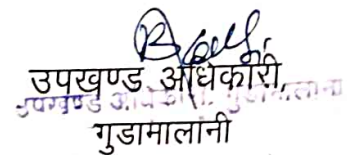 उपखण्ड अधिकारी,
उपखण्ड अधिकारी, गुडामालानी
गुडामालांनी